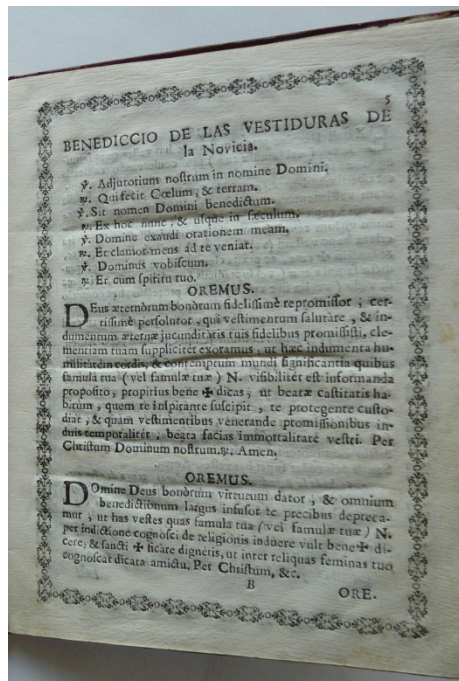 5
BENEDICCIO DE LAS VESTIDURAS DE
la Novicia.
℣. Adjutorium noſtrum in nomine Domini.
℟. Qui fecit Cœlum, & terram.
℣. Sit nomen Domini benedictum.
℟. Ex hoc nunc, & uſque in ſæculum.
℣. Domine exaudi orationem meam,
℟. Et clamor meus ad te veniat.
℣. Dominus vobiſcum.
℟. Et cum ſpiritu tuo.
OREMUS.
DEus æternòrum bonòrum fideliſſimè repromiſſor, cer-
tiſſimè perſolutor, qui veſtimentum ſalutàre, & in-
dumentum æternæ jucunditatis tuis fidelibus promiſiſti, cle-
mentiam tuam ſuppliciter exoramus, ut hæc indumenta hu-
militatem cordis, & contemptum mundi ſignificantia quibus
famula tua (vel famulæ tuæ) N. viſibilitèr eſt informanda
propoſito, propitius bene ✠ dicas, ut beatæ caſtitatis ha-
bitum, quem te inſpirante ſuſcipit, te protegente cuſto-
diat, & quam veſtimentibus venerande promiſſionibus in-
duis temporalitèr, beata facias immortalitate veſtri. Per
Chriſtum Dominum noſtrum. ℟. Amen.
OREMUS.
DOmine Deus bonòrum virtutum dator, & omnium
benedictionum largus infuſor te precibus depreca-
mur, ut has veſtes quas famula tua (vel famulæ tuæ) N.
per indictione cognoſci de religionis induere vult bene ✠ di-
cere; & ſancti ✠ ficàre dignèris, ut inter reliquas feminas tuo
cognoſcat dicata amictu. Per Chriſtum, &c.
B
ORE.